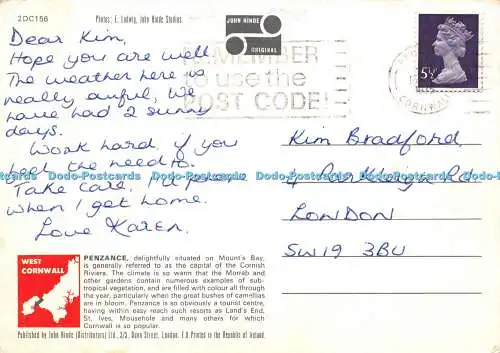 2DC156
Photos: E. Ludwig, John Hinde Studios.
JOHN HINDE
ORIGINAL
REMEMBER
to use the
POST CODE!
5½P
CORNWALL
Dear Kim,
Hope you are well.
The weather here is
really awful, we
have had 2 sunny
days.
Work hard if you
feel the need to.
Take care. I'll phone
when I get home.
Love Karen.
Kim Bradford,
4 Rd
LONDON
SW19 3BU
Dodo-Postcards Dodo-Postcards Dodo-Postcards Dodo-Postcards Dodo-Postcards
WEST
CORNWALL
PENZANCE, delightfully situated on Mount's Bay,
is generally referred to as the capital of the Cornish
Riviera. The climate is so warm that the Morrab and
other gardens contain numerous examples of sub-
tropical vegetation, and are filled with colour all through
the year, particularly when the great bushes of camellias
are in bloom. Penzance is so obviously a tourist centre,
having within easy reach such resorts as Land's End,
St. Ives, Mousehole and many others for which
Cornwall is so popular.
Published by John Hinde (Distributors) Ltd., Dean Street, London. Printed in the Republic of Ireland.